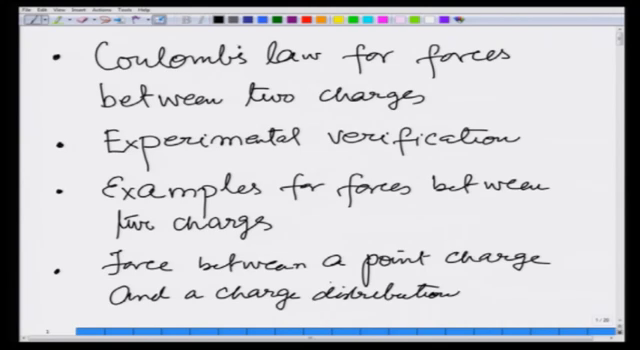 File Edit View Insert Actions Tools Help
• Coulomb's law for forces
between two charges
• Experimental verification
• Examples for forces between
two charges
• Force between a point charge
and a charge distribution
1 / 20